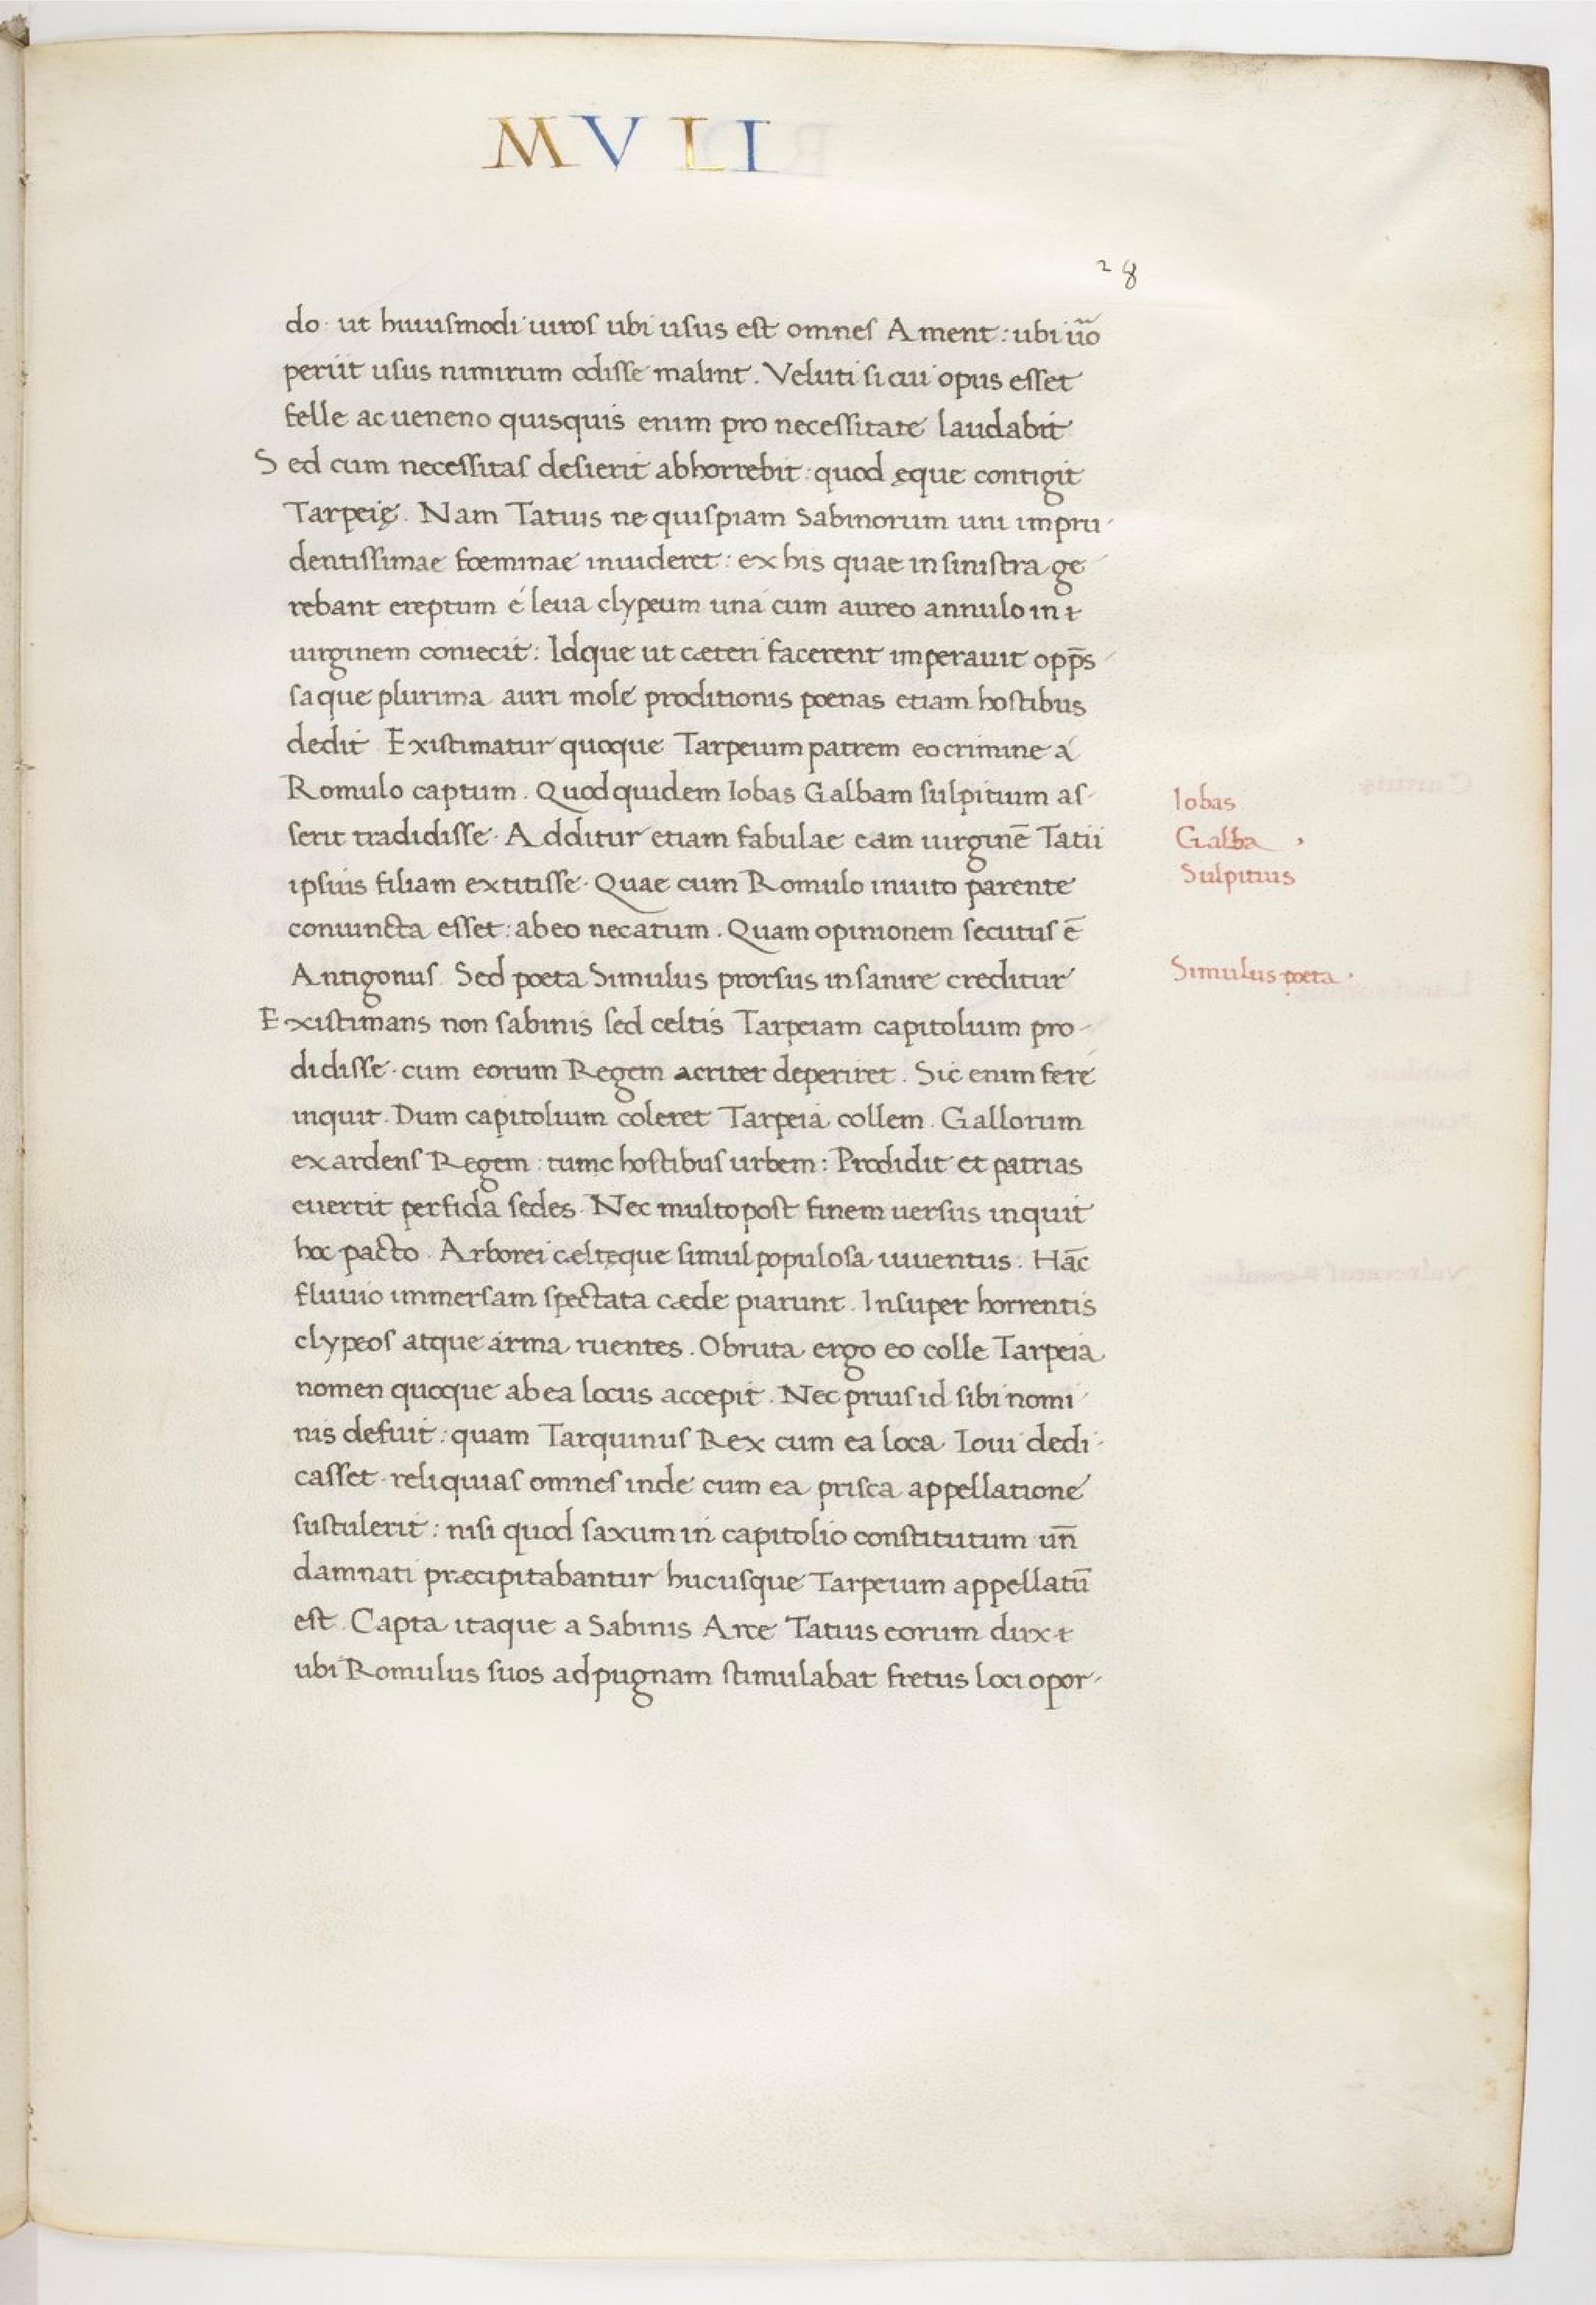 MVLI
28
do· ut huiusmodi uiros ubi usus est omnes Ament: ubi ũo
periit usus nimirum odisse malint. Veluti si cui opus esset
felle ac ueneno quisquis enim pro necessitate laudabit
Sed cum necessitas desierit abhorrebit: quod ęque contigit
Tarpeię. Nam Tatius ne quispiam Sabinorum uni impru-
dentissimae foeminae inuideret: ex his quae in sinistra ge-
rebant ereptum é leua clypeum uná cum aureo annulo in
uirginem coniecit: Idque ut cæteri facerent imperauit opp̄s-
saque plurima auri mole proditionis poenas etiam hostibus
dedit. Existimatur quoque Tarpeium patrem eo crimine á
Romulo captum. Quod quidem Iobas Galbam sulpitium as-
serit tradidisse. Additur etiam fabulae eam uirginē Tatii
ipsius filiam extitisse. Quae cum Romulo inuito parente
coniuncta esset: ab eo necatum. Quam opinionem secutus ē
Antigonus. Sed poeta Simulus prorsus insanire creditur
Existimans non sabinis sed celtis Tarpeiam capitolium pro-
didisse· cum eorum Regem acriter deperiret. Sic enim feré
inquit. Dum capitolium coleret Tarpeia collem. Gallorum
exardens Regem: tunc hostibus urbem: Prodidit et patrias
euertit perfida sedes. Nec multo post finem uersus inquit
hoc pacto. Arborei cæltęque simul populosa iuuentus: Hāc
fluuio immersam spectata cæde piarunt. Insuper horrentis
clypeos atque arma ruentes. Obruta ergo eo colle Tarpeia
nomen quoque ab ea locus accepit. Nec prius id sibi nomi-
nis defuit: quam Tarquinus Rex cum ea loca Ioui dedi-
casset· reliquias omnes inde cum ea prisca appellatione
sustulerit: nisi quod saxum in capitolio constitutum un̄
damnati præcipitabantur hucusque Tarpeium appellatū
est. Capta itaque a Sabinis Arce Tatius eorum dux
ubi Romulus suos ad pugnam stimulabat fretus loci opor-
Iobas
Galba
Sulpitius
Simulus poeta.